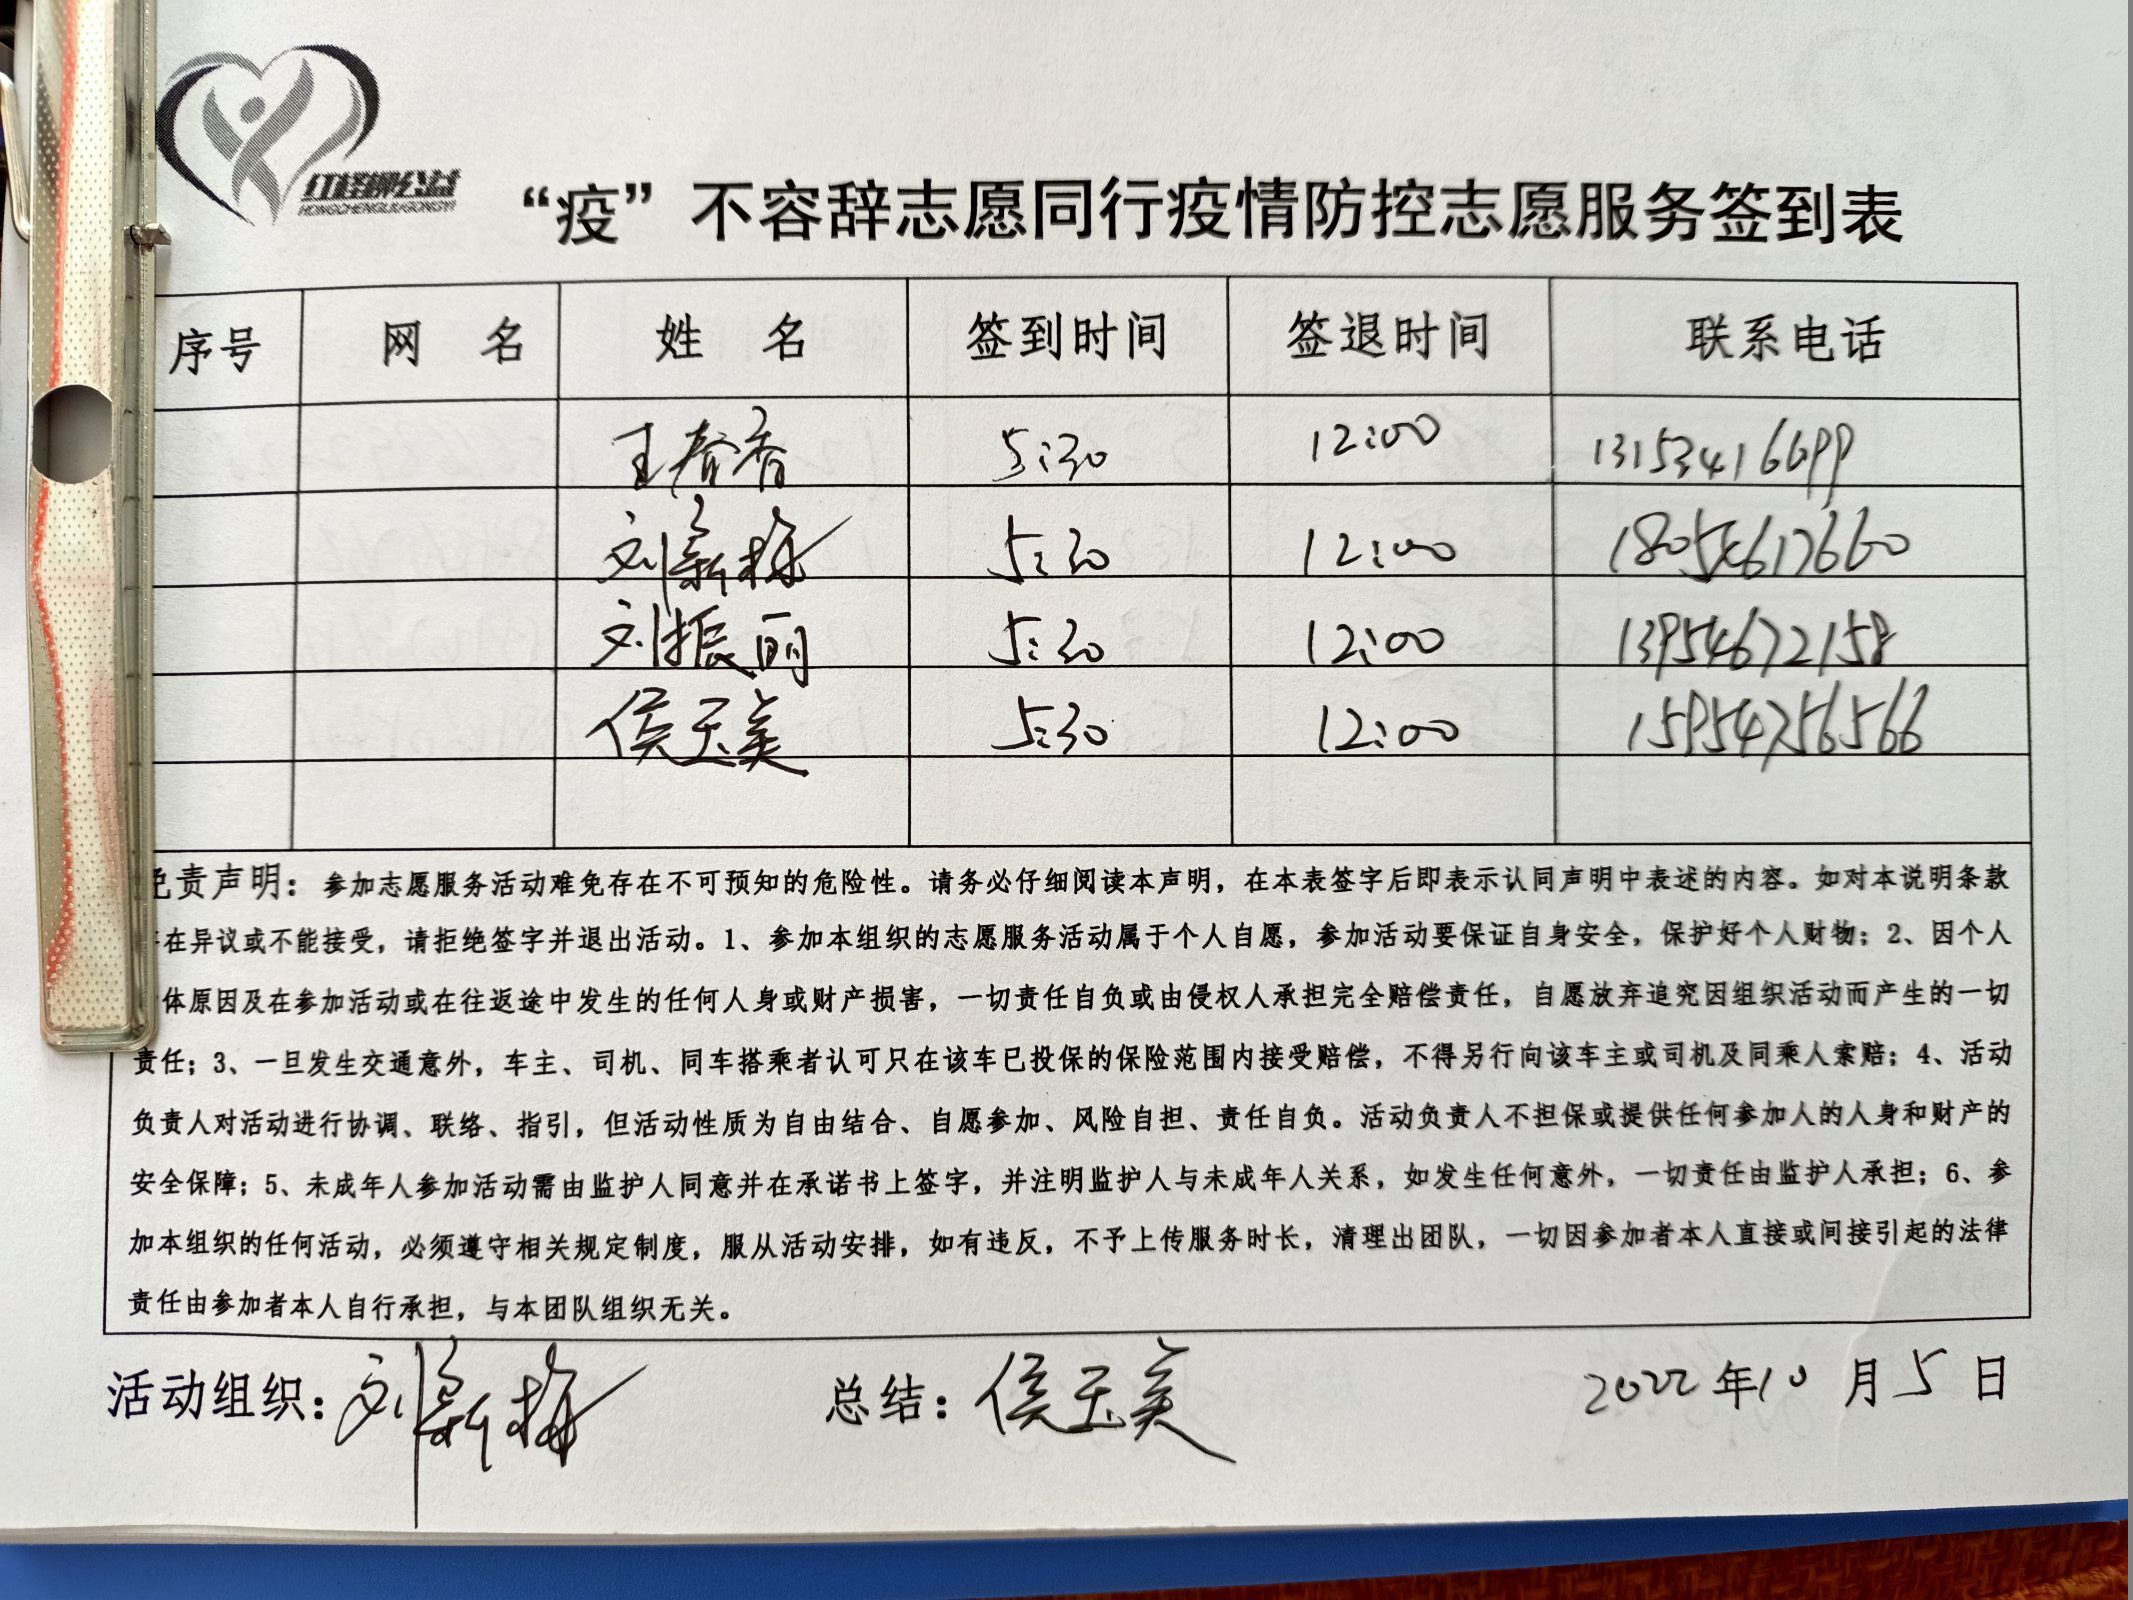 红柽柳公益
HONGCHENGLIUGONGYI
“疫”不容辞志愿同行疫情防控志愿服务签到表
序号 网 名 姓 名 签到时间 签退时间 联系电话
王春香 5:30 12:00 13153416699
刘新梅 5:30 12:00 18054617660
刘振丽 5:30 12:00 13954672158
侯玉美 5:30 12:00 15954756566
免责声明：参加志愿服务活动难免存在不可预知的危险性。请务必仔细阅读本声明，在本表签字后即表示认同声明中表述的内容。如对本说明条款
在异议或不能接受，请拒绝签字并退出活动。1、参加本组织的志愿服务活动属于个人自愿，参加活动要保证自身安全，保护好个人财物；2、因个人
体原因及在参加活动或在往返途中发生的任何人身或财产损害，一切责任自负或由侵权人承担完全赔偿责任，自愿放弃追究因组织活动而产生的一切
责任；3、一旦发生交通意外，车主、司机、同车搭乘者认可只在该车已投保的保险范围内接受赔偿，不得另行向该车主或司机及同乘人索赔；4、活动
负责人对活动进行协调、联络、指引，但活动性质为自由结合、自愿参加、风险自担、责任自负。活动负责人不担保或提供任何参加人的人身和财产的
安全保障；5、未成年人参加活动需由监护人同意并在承诺书上签字，并注明监护人与未成年人关系，如发生任何意外，一切责任由监护人承担；6、参
加本组织的任何活动，必须遵守相关规定制度，服从活动安排，如有违反，不予上传服务时长，清理出团队，一切因参加者本人直接或间接引起的法律
责任由参加者本人自行承担，与本团队组织无关。
活动组织：刘新梅 总结：侯玉美 2022年10月5日